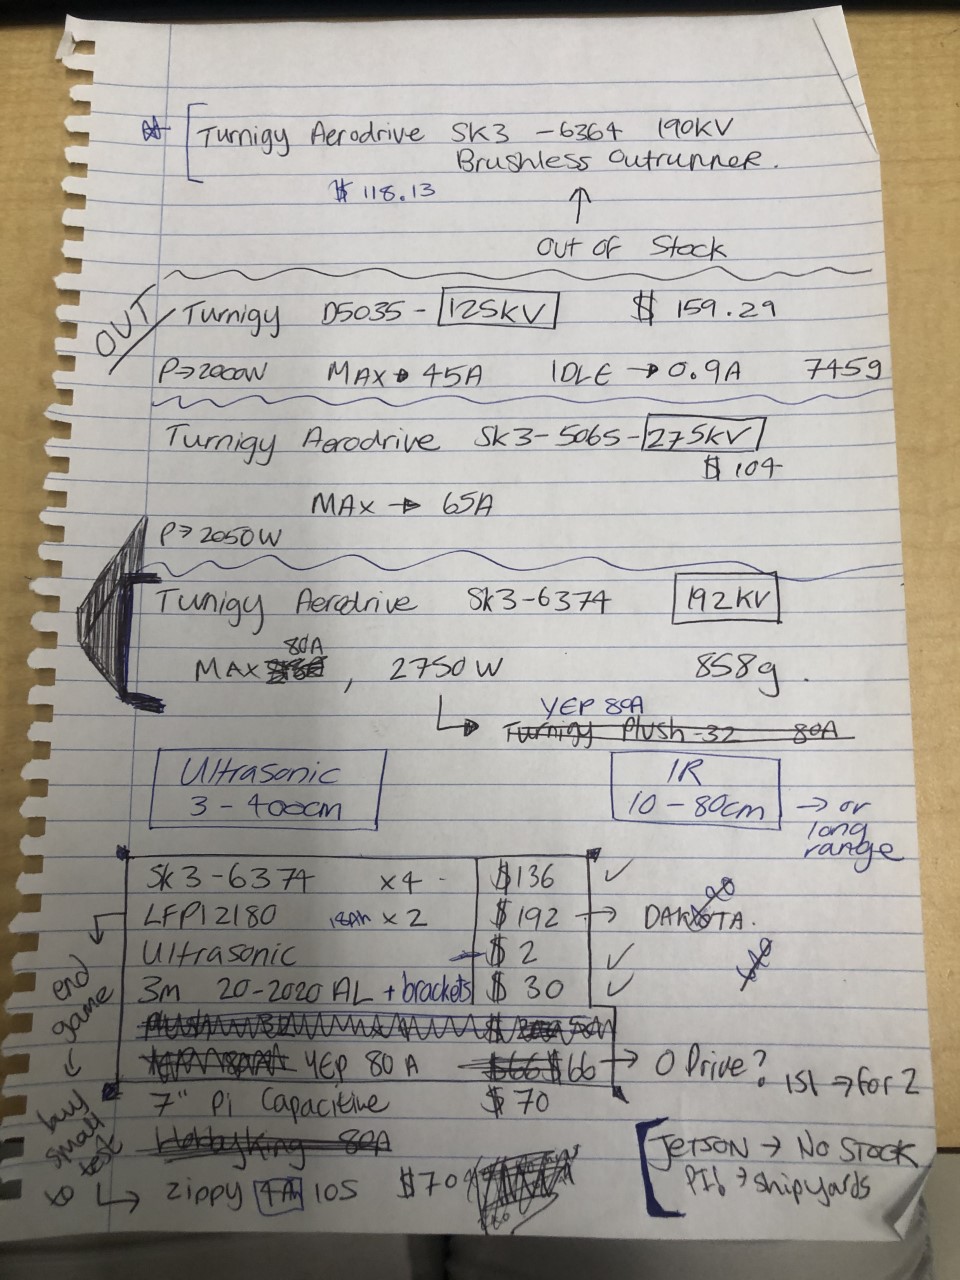 Turnigy Aerodrive SK3 - 6364 190KV
Brushless Outrunner.
$ 118.13
↑
Out of Stock
OUT
Turnigy D5035 - 125KV $ 159.29
P→2000W MAX → 45A IDLE → 0.9A 745g
Turnigy Aerodrive SK3-5065-275KV
$ 104
MAX → 65A
P→2050W
Tunigy Aerodrive SK3-6374 192KV
80A
MAX , 2750W 858g.
YEP 80A
Turnigy Plush-32 80A
Ultrasonic
3 - 400cm
IR
10 - 80cm → or
long
range
SK3-6374 x4 - $136 ✓
LFP12180 18Ah x 2 $192 → DAKOTA.
Ultrasonic $ 2 ✓
3m 20-2020 AL + brackets $ 30 ✓
YEP 80 A $66 $66 → O Drive?
151 → for 2
7" Pi Capacitive $ 70
HobbyKing 80A
end
game
→
buy
small
to test
→ Zippy 4Ah 10S $70
JETSON → NO STOCK
PI! → shipyards